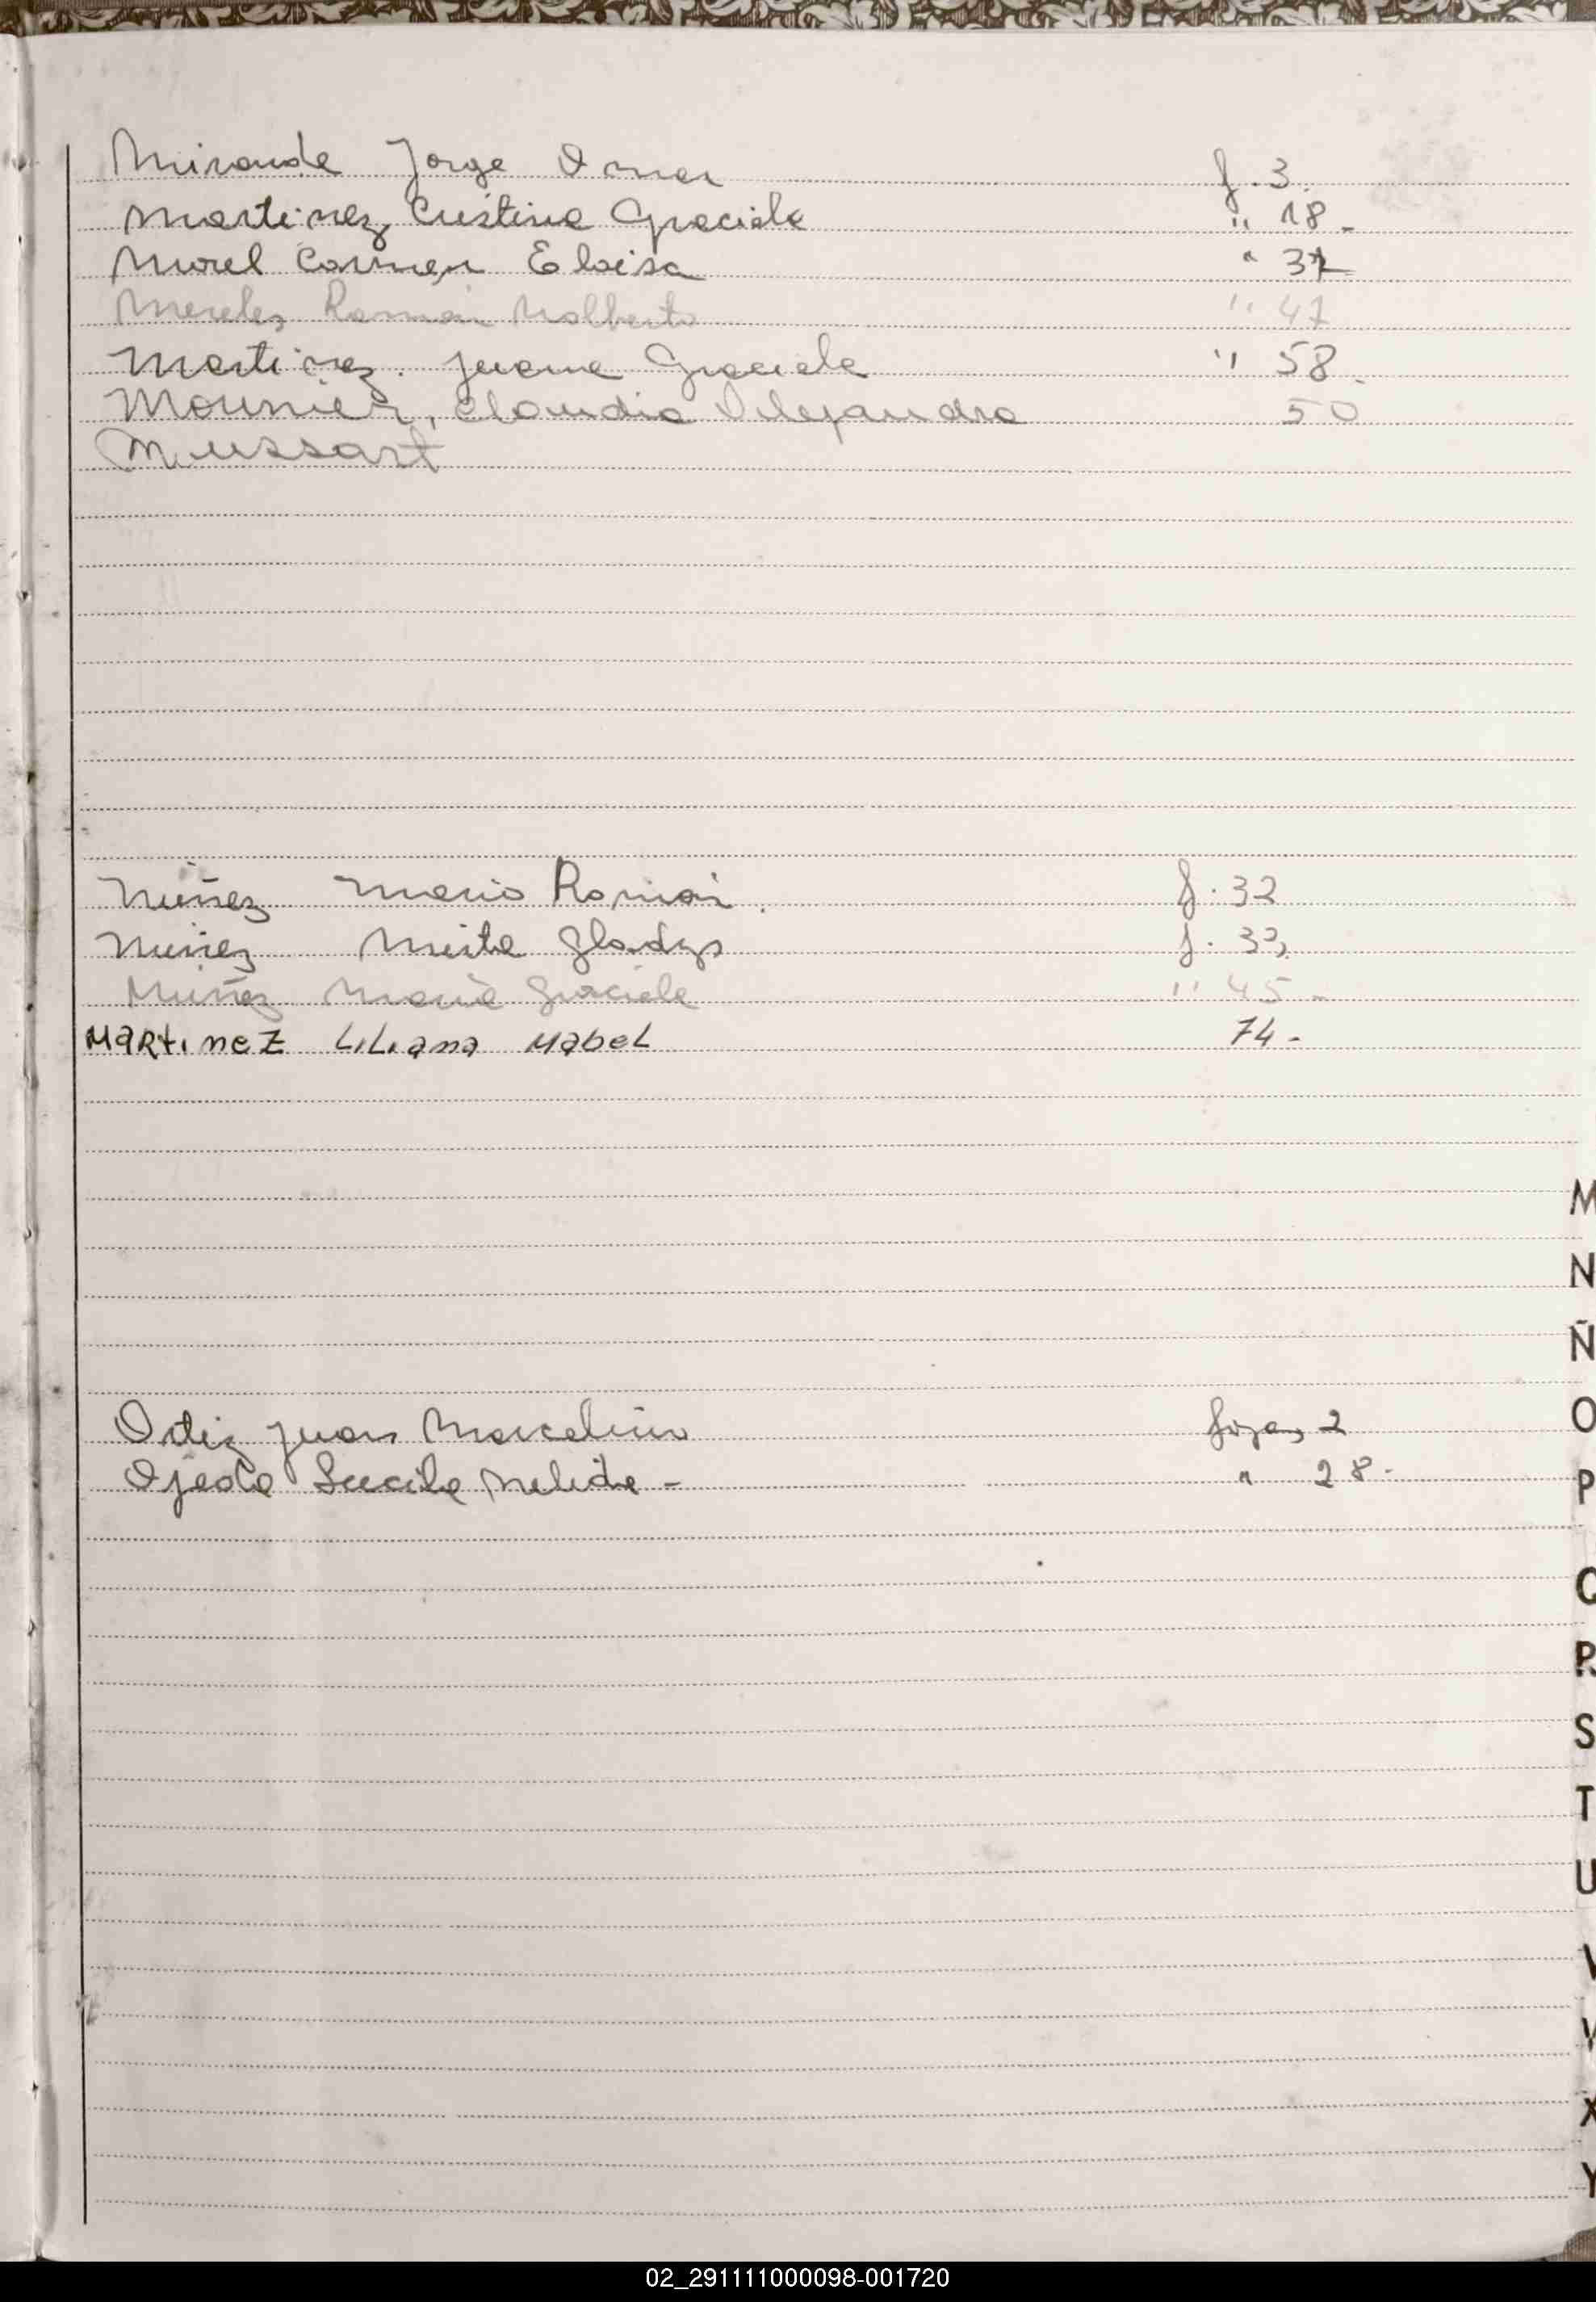 Miranda Jorge Omar f. 3.
Martinez Cristina Graciela " 18 -
Morel Carmen Eloisa " 37
Mereles Ramón Nolberto " 47
Martinez. Juana Graciela " 58.
Mounier, Claudia Alejandra 50
Mussart
Nuñez Mario Román. f. 32
Nuñez Mirta Gladys f. 33
Muñez María Graciela " 45 -
Martinez Liliana Mabel 74 -
Ortiz Juan Marcelino fojas 2
Ojeda Lucila Nelida - " 28 -
M
N
Ñ
O
P
Q
R
S
T
U
V
X
Y
02_291111000098-001720